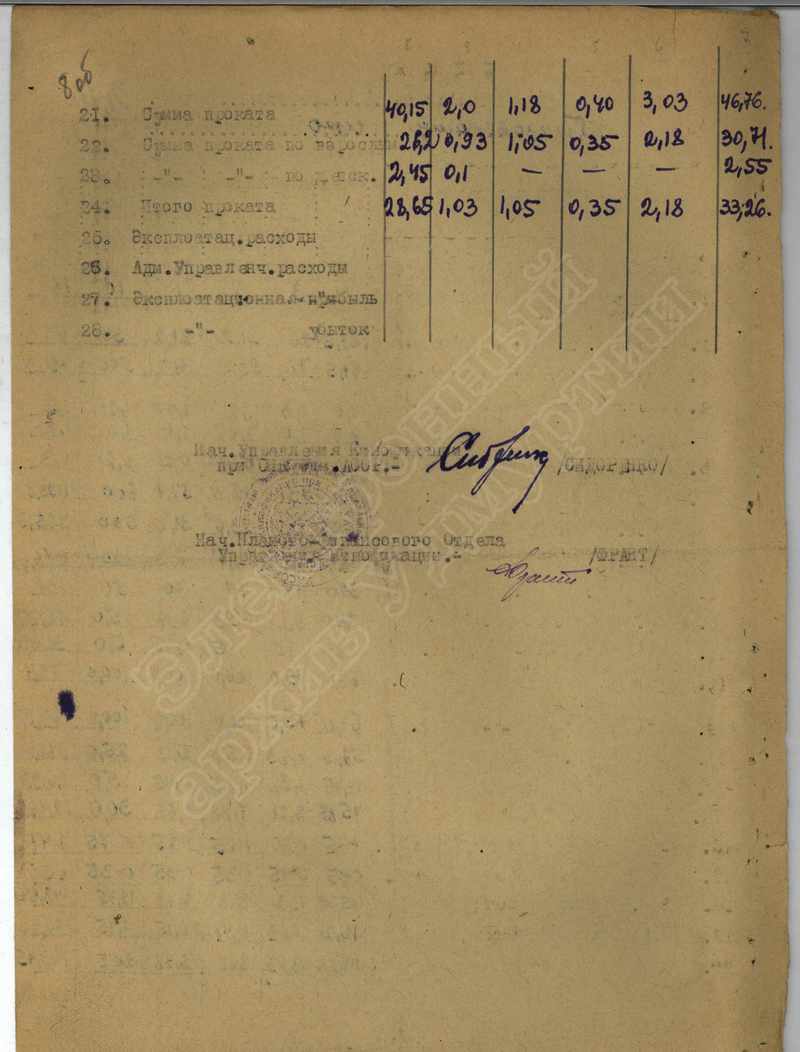 8об
21. Сумма проката 40,15 2,0 1,18 0,40 3,03 46,76.
22. Сумма проката по взросл. 26,2 0,93 1,05 0,35 2,18 30,71.
23. -"- -"- по детск. 2,45 0,1 — — — 2,55
24. Итого проката 28,65 1,03 1,05 0,35 2,18 33,26.
25. Эксплоатац.расходы
26. Адм.Управленч.расходы
27. Эксплоатационная прибыль
28. -"- убыток
Нач.Управления Кинофикации
при /СИДОРЕНКО/
Нач.Планово-Финансового Отдела
Управления Кинофикации.- /ФРАНТ/
Электронный
архив Удмуртии